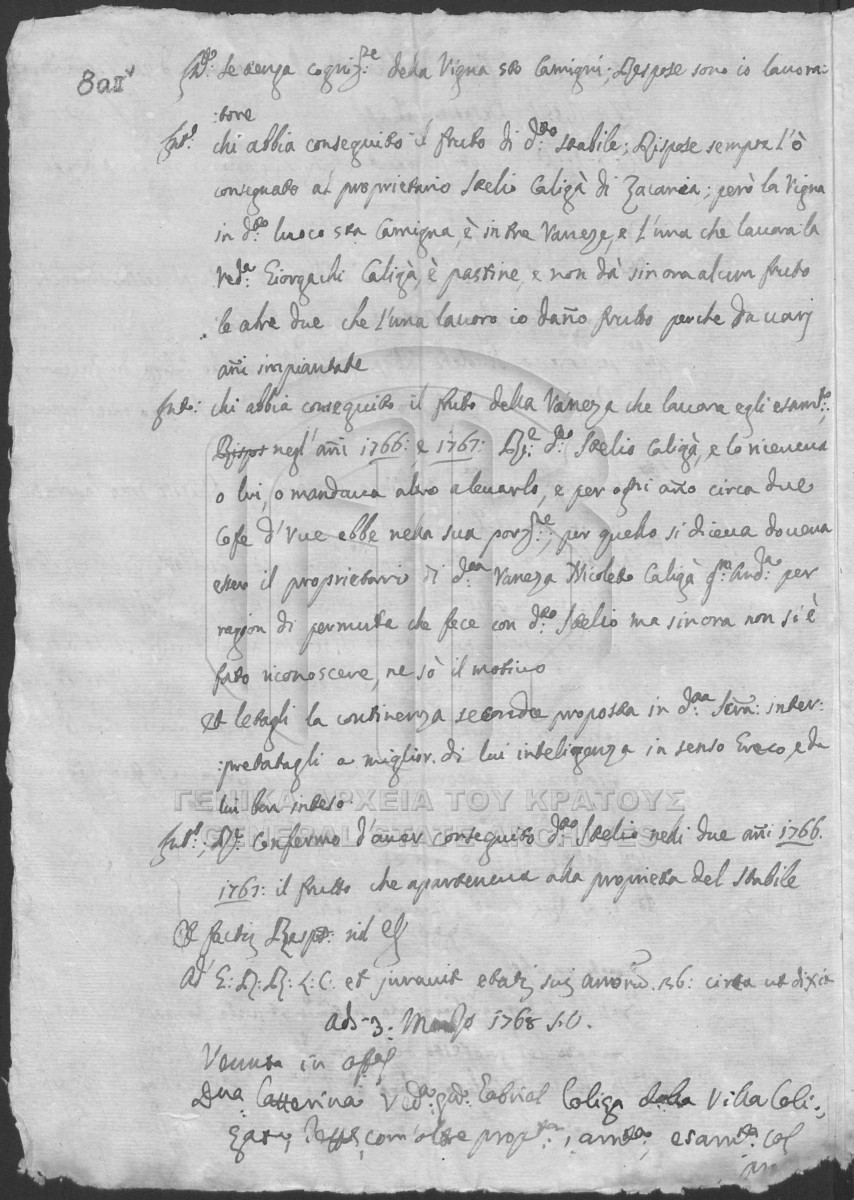 8aII
se tenga cogniz:ne della Vigna sto Camigni; Rispose sono io lavora:
:tore
Int:o chi abbia conseguito il fruto di d:to stabile; Rispose sempre l'ò
consegnato al proprietario Stelio Caligà di Zacaria; però la Vigna
in d:to luoco sta Camigna, è in tre Vaneze, e l'una che lavora la
Ved:a Giorgachi Caligà, è pastine, e non dà sin ora alcun fruto
le altre due che l'una lavoro io dañо frutto perche da varj
añi impiantate
Int:o: chi abbia conseguito il fruto della Vaneza che lavora egli esam:to,
Rispo negl'añi 1766: e 1767: R:e d:to Stelio Caligà, e lo riceveva
o lui, o mandava altro a levarlo, e per ogni año circa due
Cofe d'Vue ebbe nella sua porz:ne; per quello si diceva doveva
esser il proprietario di d:ta Vaneza Nicoletto Caligà q:m And:a per
raggion di permuta che fece con d:to Stelio ma sin ora non si è
fato riconoscere, ne sò il motivo
Et letagli la continenza seconda proposta in d:ta Scra: inter:
:pretatagli a miglior di lui inteligenza in senso Greco, e da
lui ben inteso
Int:o; R:e Confermo d'aver conseguito d:to Stelio nelli due añi 1766.
1767: il frutto che aparteneva alla proprieta del stabile
Et factis Resp: nil
Ad G: R: R: L: C: et juravit etatis suis annorũ. 36: circa ut dixit
Adi 3: Marzo 1768 S.V.
Venuta in
Dna Catterina Ved:a q:m Gabriel Caliga della Villa Cali:
gata, com'oltre prop:ta, am:ta, esam:ta